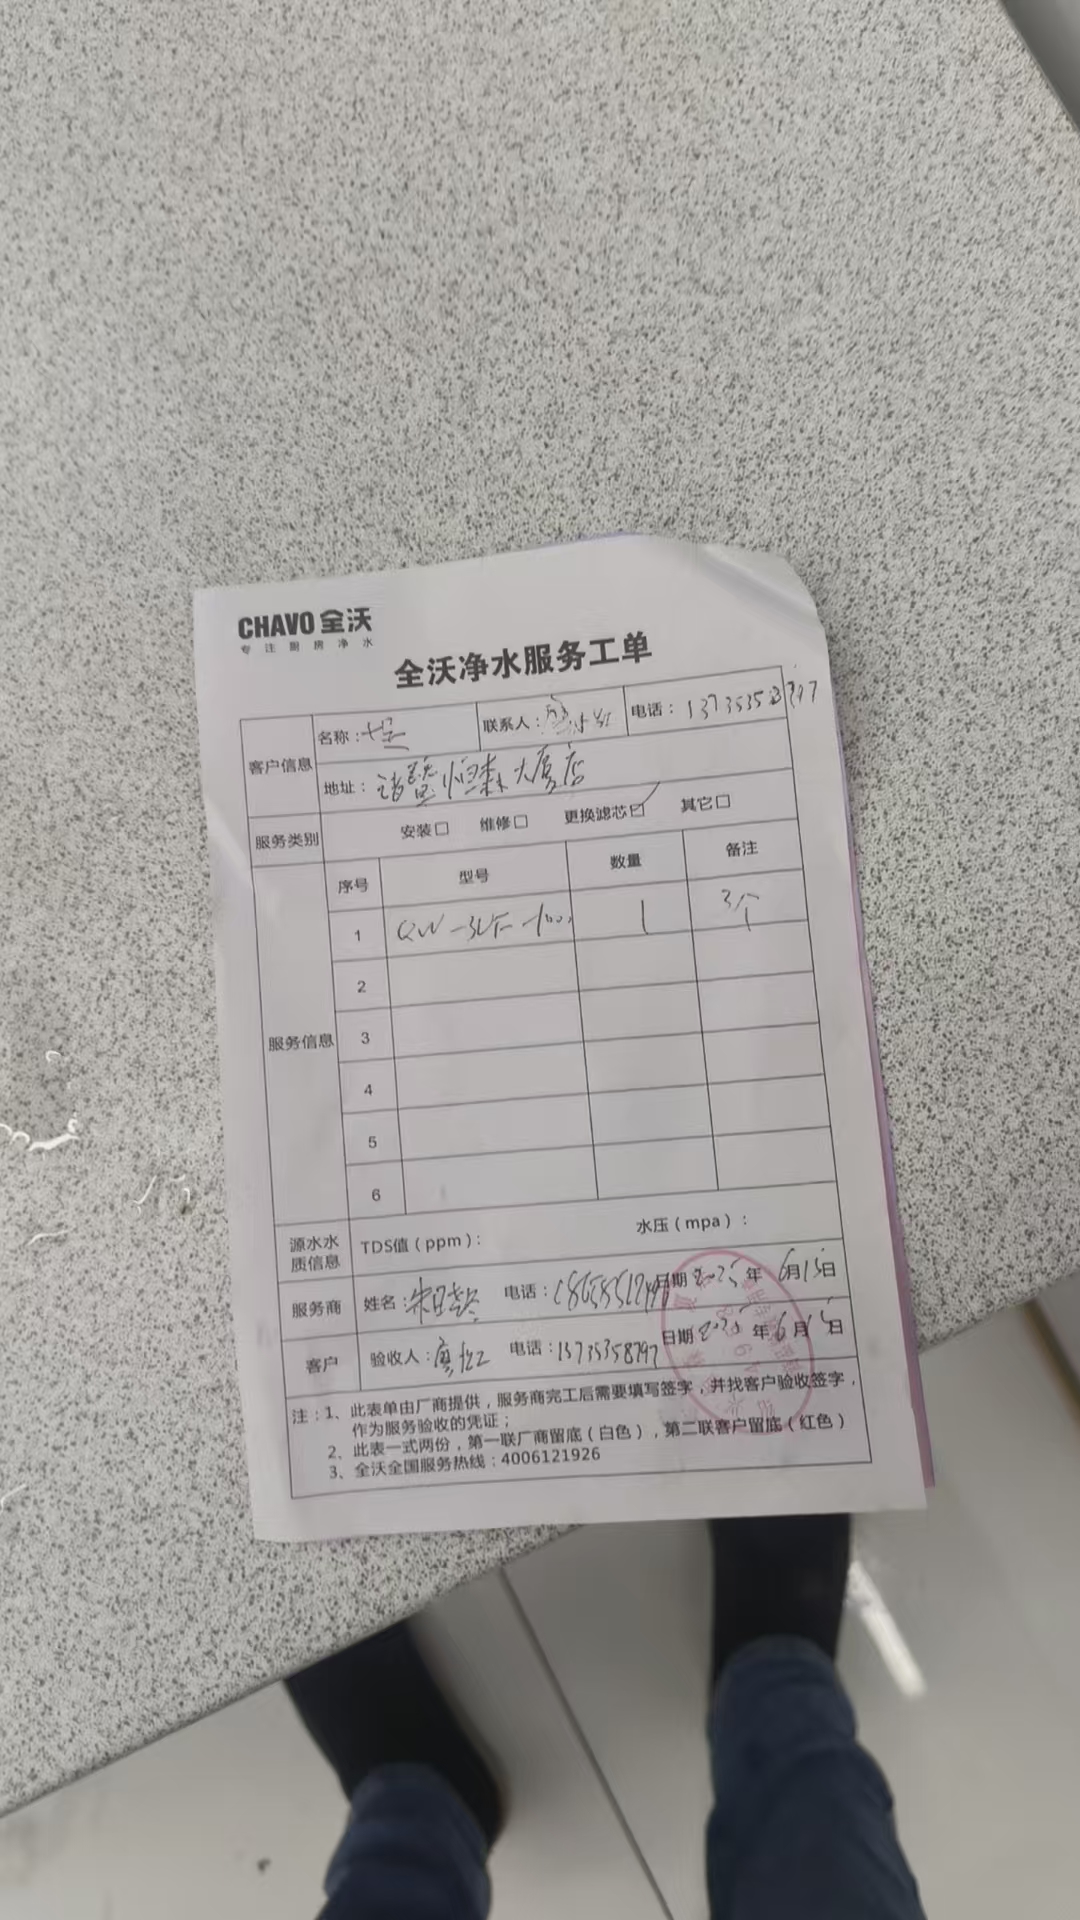 CHAVO 全沃
专注厨房净水
全沃净水服务工单
客户信息 名称： 联系人： 电话：
地址：诸暨恒森大厦店
服务类别 安装□ 维修□ 更换滤芯☑ 其它□
服务信息 序号 型号 数量 备注
1 1 3个
2
3
4
5
6
源水水质信息 TDS值（ppm）： 水压（mpa）：
服务商 姓名： 电话： 日期 2025年 6月15日
客户 验收人：廖红 电话：13735358797 日期 2025年 6月15日
注：1、此表单由厂商提供，服务商完工后需要填写签字，并找客户验收签字，
作为服务验收的凭证；
2、此表一式两份，第一联厂商留底（白色），第二联客户留底（红色）
3、全沃全国服务热线：4006121926